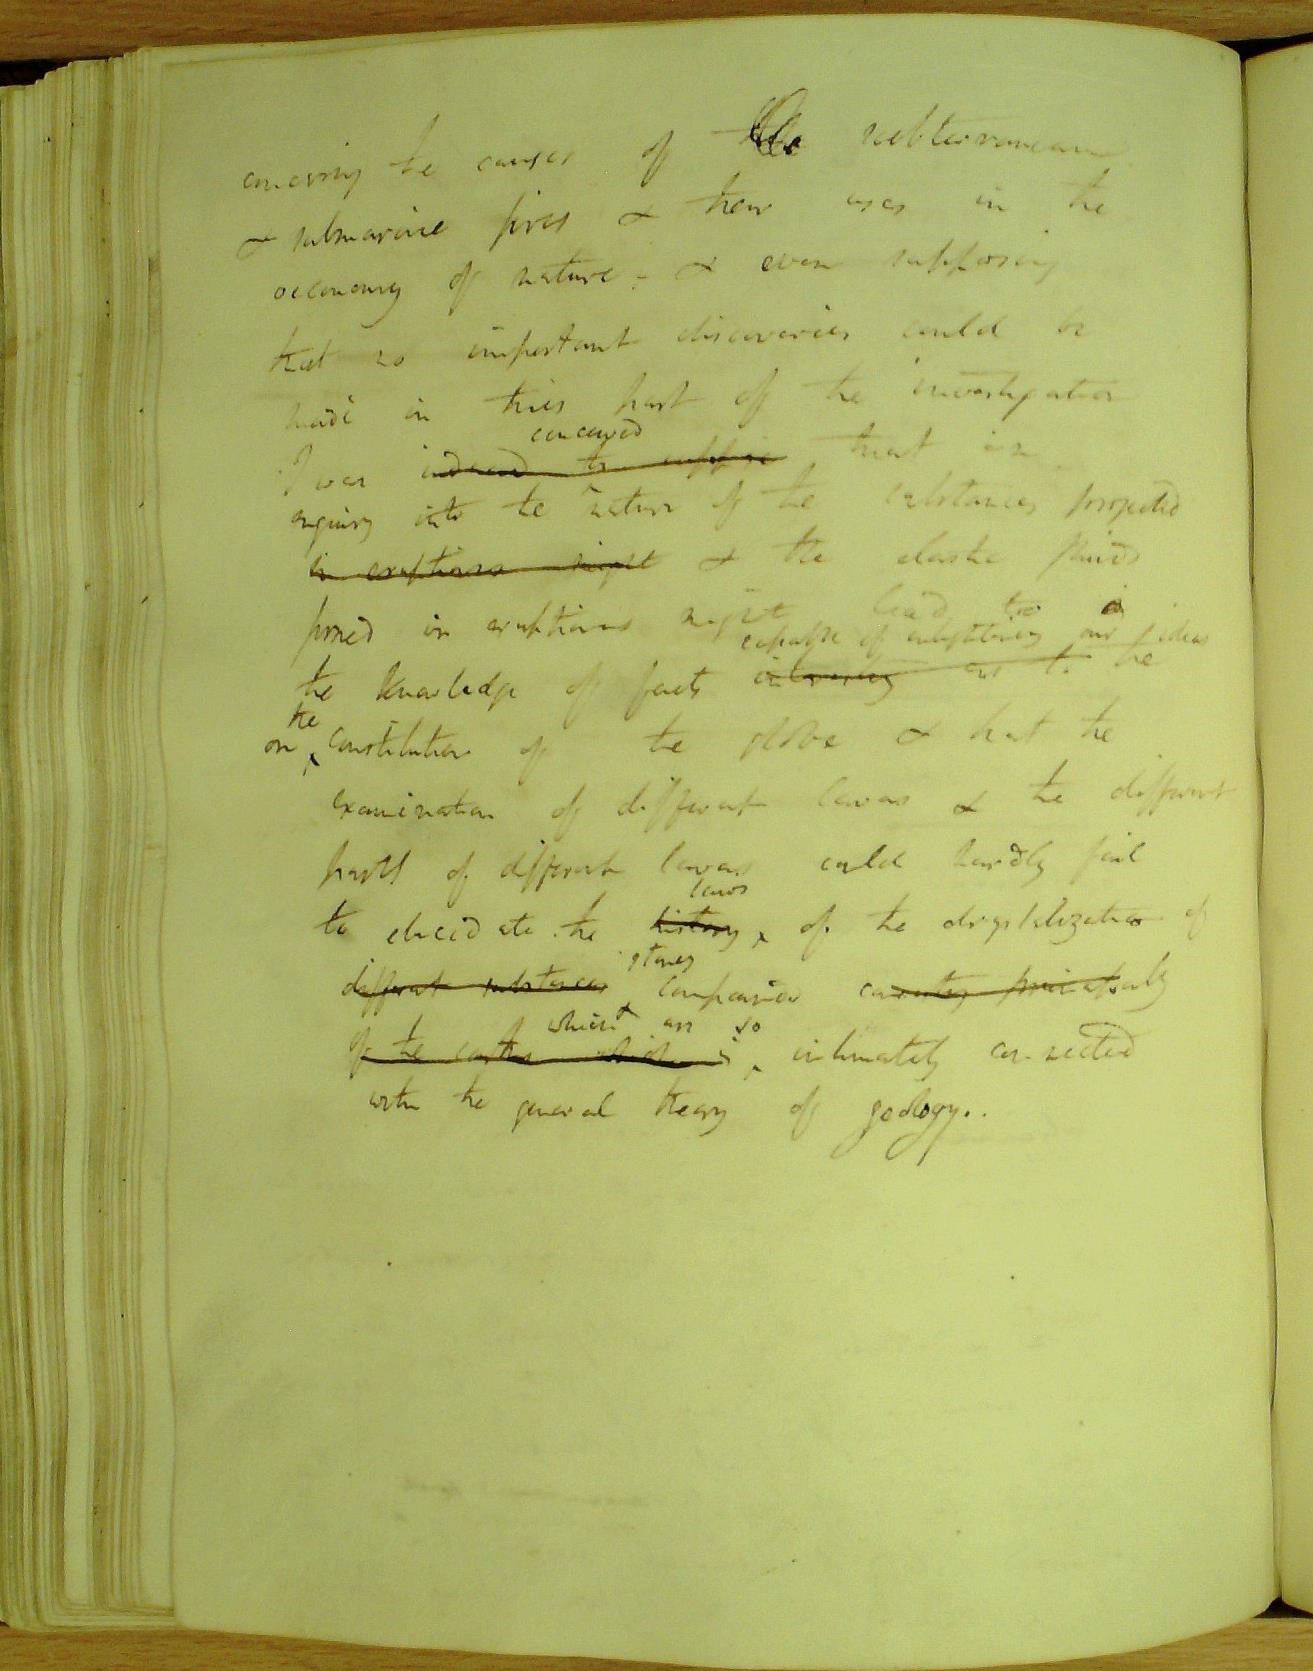 concerning the causes of the subterranean
& submarine fires & their uses in the
oeconomy of nature. - & even supposing
that no important discoveries could be
made in this part of the investigation
conceived
I was induced to suppose that in
enquiry into the nature of the substances projected
in eruptions might & the elastic fluids
formed in eruptions might lead to a
capable of enlightening our ideas
the knowledge of facts interesting as to the
the
on constitution of the globe & that the
examination of different lavas & the different
parts of different lavas could hardly fail
laws
to elucidate the history of the crystalization of
stones
different substances compounded consisting principally
which are so
of the earths which is intimately connected
with the general theory of geology..